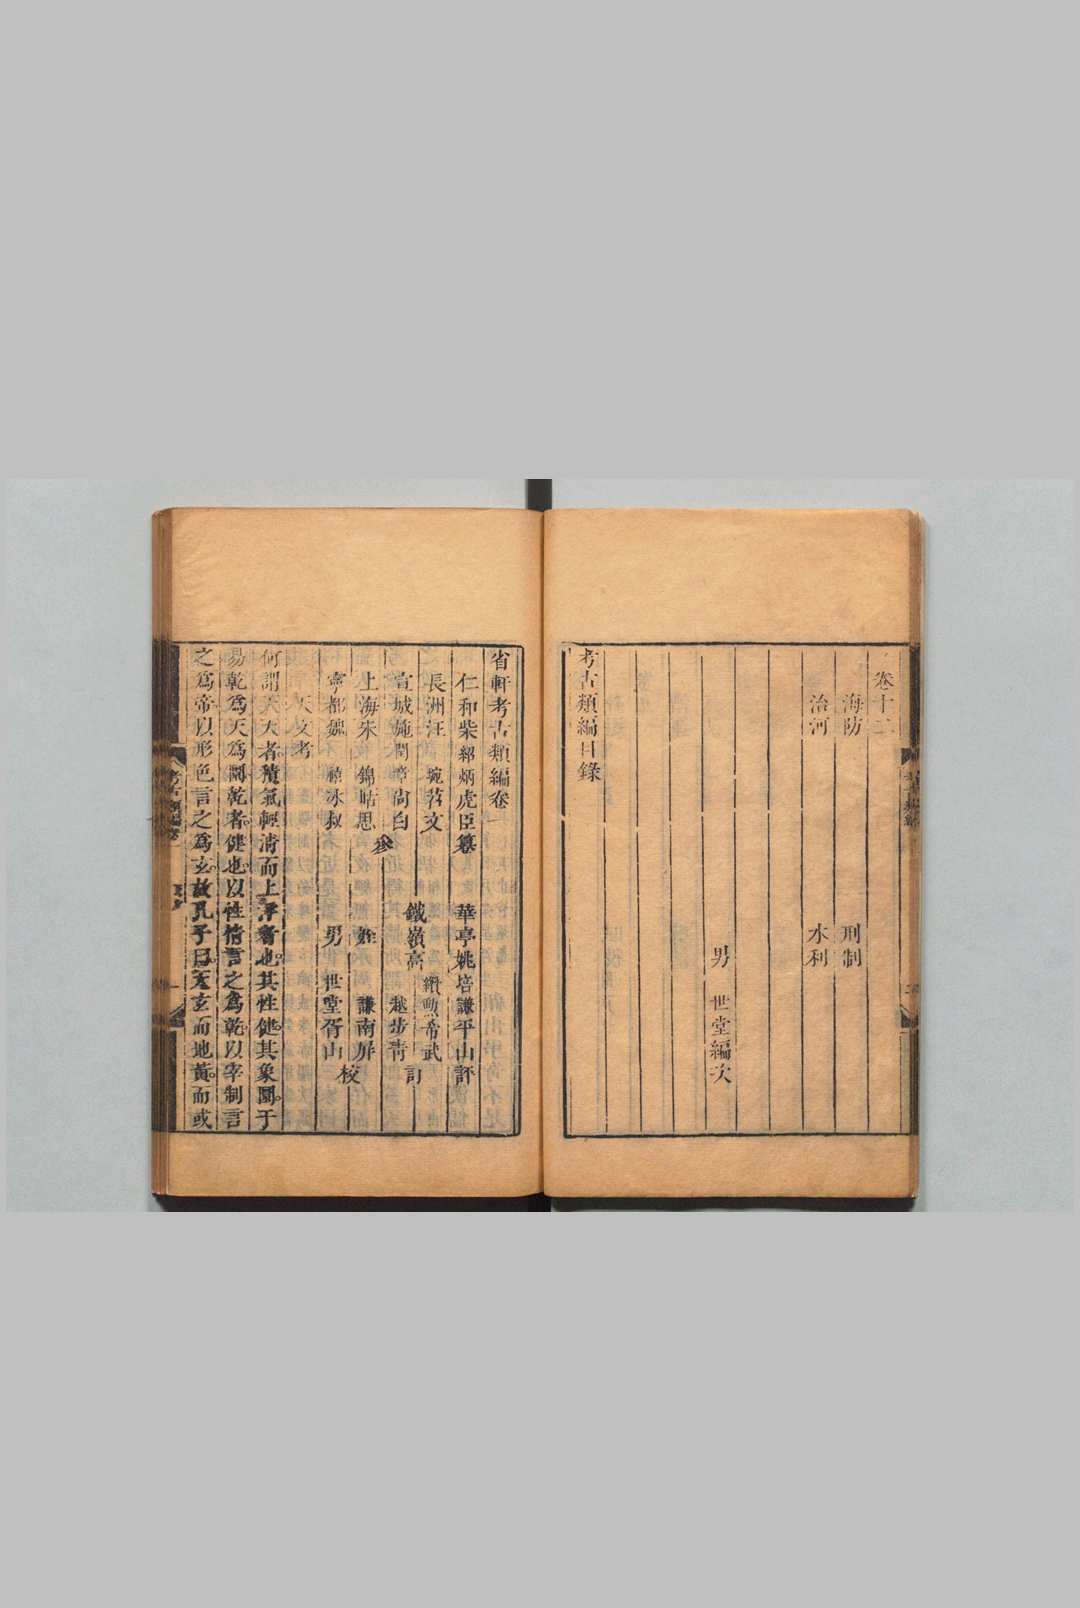 卷十二
海防
刑制
治河
水利
男 世堂編次
考古類編目錄
省軒考古類編卷一
仁和柴紹炳虎臣纂 華亭姚培謙平山評
長洲汪 琬苕文
宣城施閏章尚白
上海朱 錦岵思
寧都魏 禧冰叔
參
鐵嶺高 纘勳希武
越步青
訂
姪 謙南屏
男 世堂胥山
校
天文考
何謂天天者積氣輕清而上浮者也其性健其象圜于
易乾爲天爲圜乾者健也以性情言之爲乾以宰制言
之爲帝以形色言之爲玄故孔子曰天玄而地黃而或